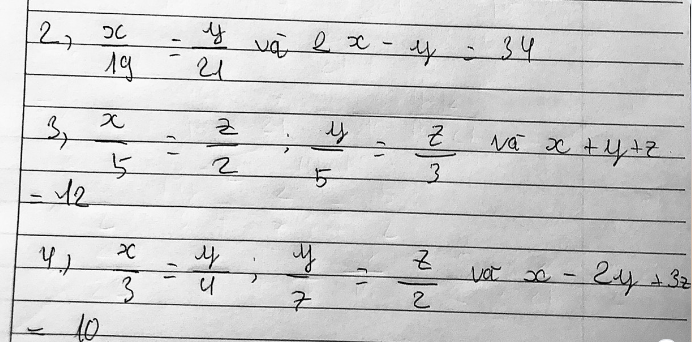 2, x/19 = y/21 và 2x - y = 34
3, x/5 = z/2 ; y/5 = z/3 và x + y + z
= 12
4.) x/3 = y/4 ; y/7 = z/2 và x - 2y + 3z
= 10